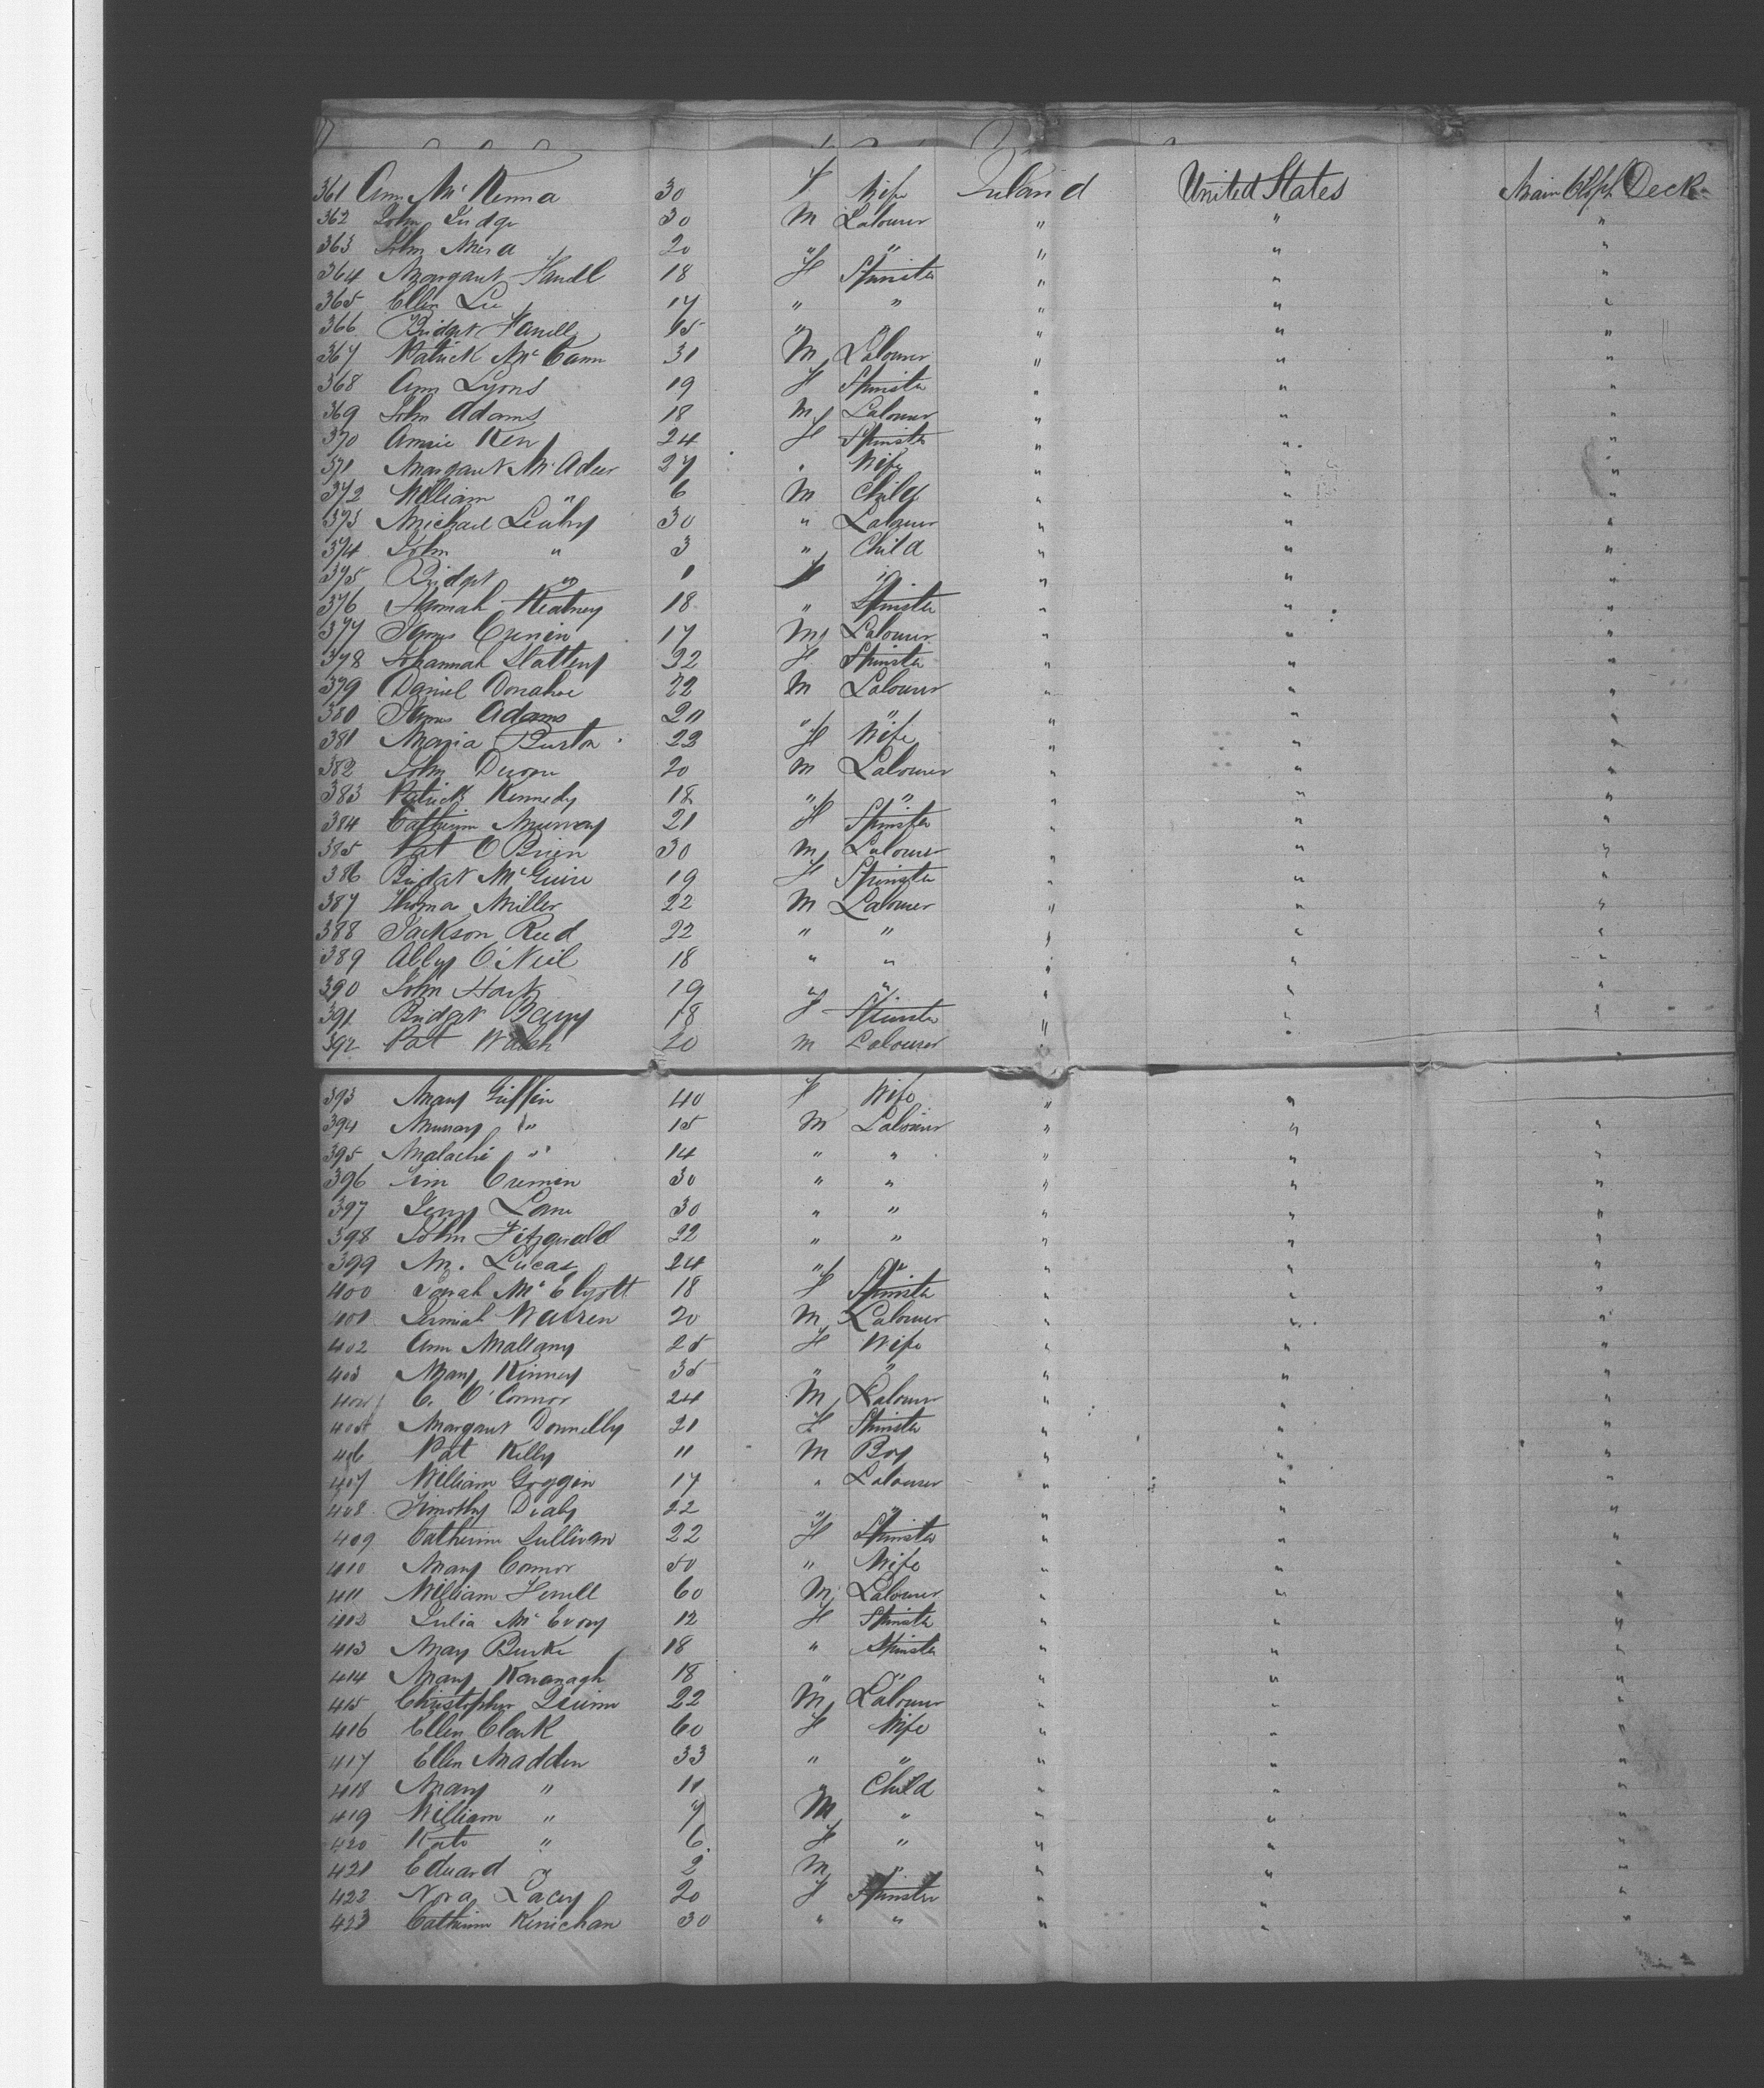 361 Ann McKenna 30 F Wife Ireland United States Main Deck
362 John Judge 30 M Labourer " " "
363 John Mera 20 " " " " "
364 Margaret Farrell 18 F Spinster " " "
365 Ellen Lee 17 " " " " "
366 Bridget Farrell 15 " " " " "
367 Patrick McCann 31 M Labourer " " "
368 Ann Lyons 19 F Spinster " " "
369 John Adams 18 M Labourer " " "
370 Annie Kerr 24 F Spinster " " "
371 Margaret McAdeer 27 " Wife " " "
372 William " 6 M Child " " "
373 Michael Leahy 30 " Labourer " " "
374 John " 3 " Child " " "
375 Bridget " 1 F " " " "
376 Hannah Keatney 18 " Spinster " " "
377 James Cremin 17 M Labourer " " "
378 Johannah Slattery 32 F Spinster " " "
379 Daniel Donahoe 22 M Labourer " " "
380 James Adams 20 " " " " "
381 Maria Burton 22 F Wife " " "
382 John 20 M Labourer " " "
383 Patrick Kennedy 18 " " " " "
384 Catherine Murray 21 F Spinster " " "
385 Pat O'Brien 30 M Labourer " " "
386 Bridget McGuire 19 F Spinster " " "
387 Thomas Miller 22 M Labourer " " "
388 Jackson Reed 22 " " " " "
389 Abby O'Neil 18 " " " " "
390 John Hart 19 " " " " "
391 Bridget Barry 18 F Spinster " " "
392 Pat Walsh 20 M Labourer " "
393 Mary Griffin 40 F Wife " "
394 Murray " 15 M Labourer " " "
395 Malachi " 14 " " " " "
396 Tim Cremin 30 " " " " "
397 Jerry Lane 30 " " " " "
398 John Fitzgerald 22 " " " " "
399 M. Lucas 24 " " " " "
400 Sarah McElgott 18 F Spinster " " "
401 Jermiah Warren 20 M Labourer " " "
402 Ann Mallany 25 F Wife " " "
403 Mary Kinney 35 " " " " "
404 C. O'Connor 24 M Labourer " " "
405 Margaret Donnelly 21 F Spinster " " "
406 Pat Kelly 11 M Boy " " "
407 William Goggin 17 " Labourer " " "
408 Timothy Dealy 22 " " " " "
409 Catherine Sullivan 22 F Spinster " " "
410 Mary Connor 50 " Wife " " "
411 William 60 M Labourer " " "
412 Julia McEvoy 12 F Spinster " " "
413 Mary Burke 18 " Spinster " " "
414 Mary Kavanagh 18 " " " " "
415 Christopher Quinn 22 M Labourer " " "
416 Ellen Clark 60 F Wife " " "
417 Ellen Madden 33 " " " " "
418 Mary " 11 " Child " " "
419 William " 7 M " " " "
420 Kate " 6 F " " " "
421 Edward " 2 M " " " "
422 Nora Lacey 20 F Spinster " " "
423 Catherine Kenichan 30 " " " " "